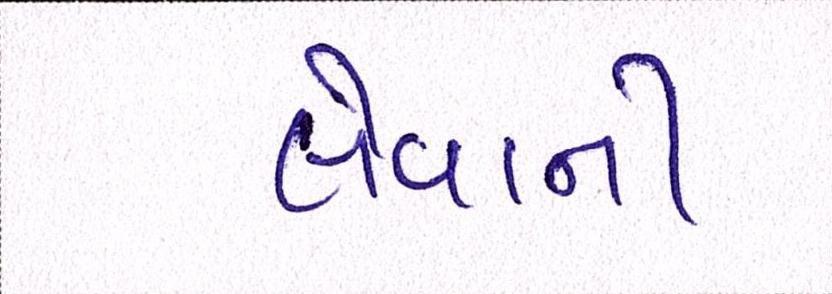 લેવાની